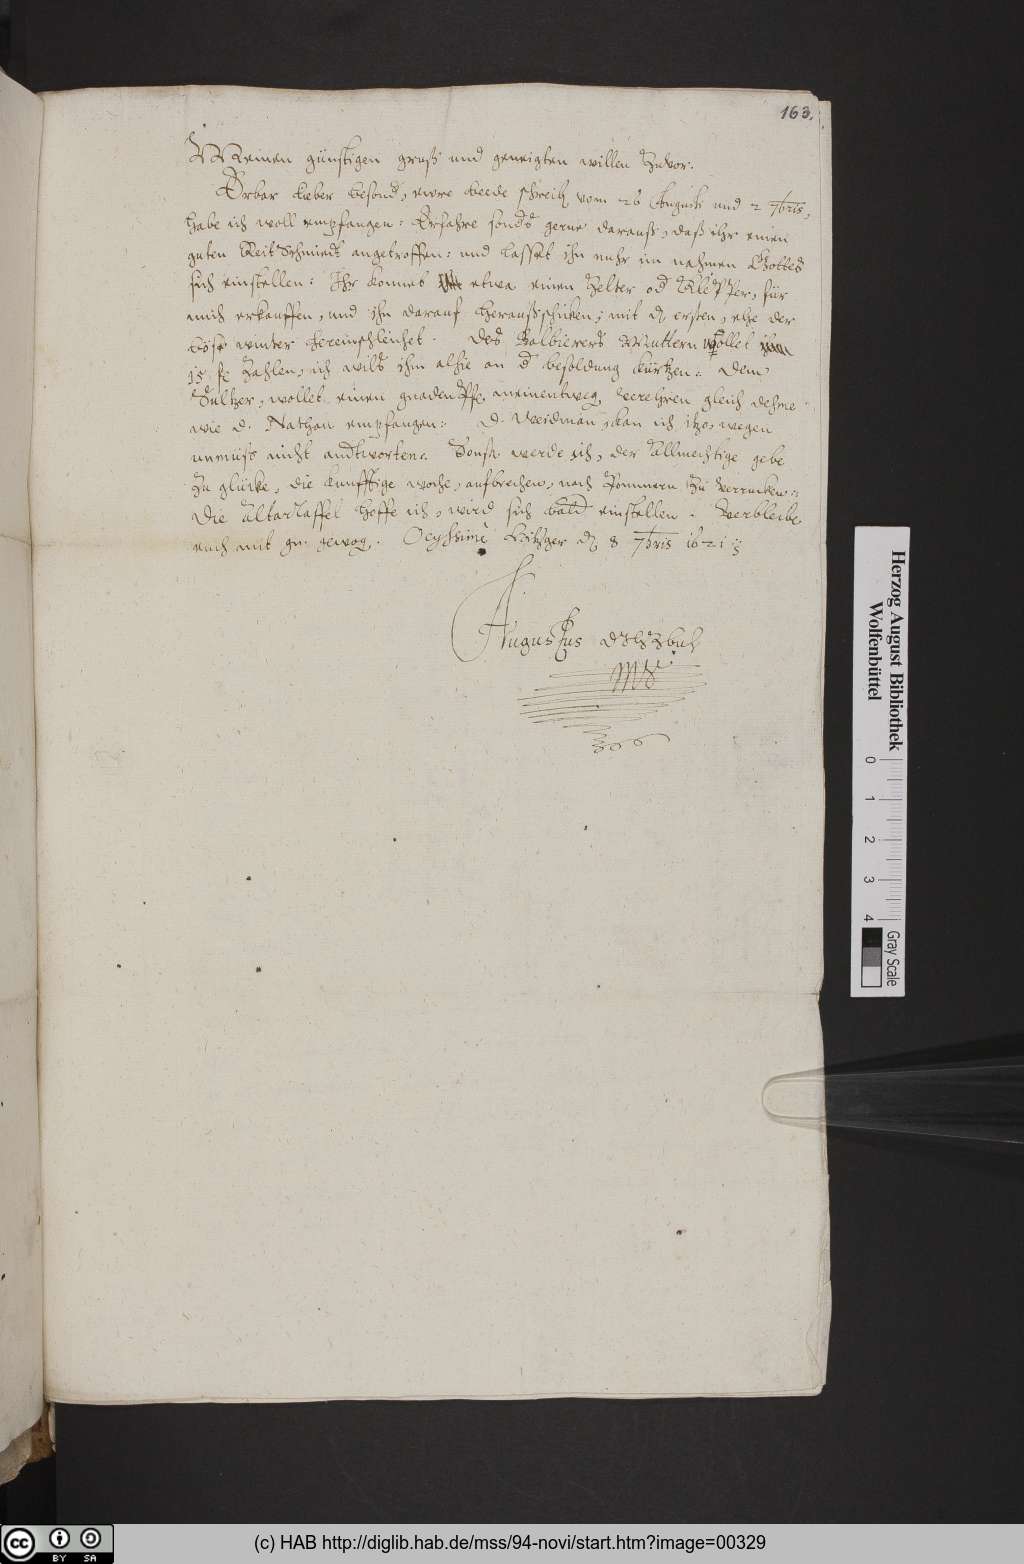 163.
Meinen günstigen gruß und geneigten willen zuvor.
Erbar lieber besond, ewre beede schreib vom 26 Augusti und 2 7bris,
habe ich woll empfangen: Erfahre sonds gerne darauß, daß ihr einen
guten Reit Schmiedt angetroffen: und lasset ihn nuhr im nahmen Gottes
sich einstellen: Ihr konnet etwa einen Zelter od Klepper, für
mich erkauffen, und ihn darauf herausschicken, mit d ersten, ehe der
böse winter hereinschleichet. Des Balbierers Muttern wollet
15 zahlen, ich wills ihm alhie an d besoldung kürtzen: Dem
Sultzer, wollet einen gnaden meinentweg verehren gleich dehme
wie d. Nathan empfangen: D. Weidman, kan ich itzo, wegen
unmuss nicht andtworten. Sonst werde ich, der Allmechtige gebe
zu glücke, die kunfftige woche, aufbrechen, nach Pommern zu verrucken:
Die Altartaffel hoffe ich, wird sich bald einstellen. Verbleibe
euch mit gn. gewog. Ocyssime Hitzger d 8 7bris 1621
Augustus
Herzog August Bibliothek
Wolfenbüttel
0 1 2 3 4
Gray Scale
cc BY SA
(c) HAB http://diglib.hab.de/mss/94-novi/start.htm?image=00329